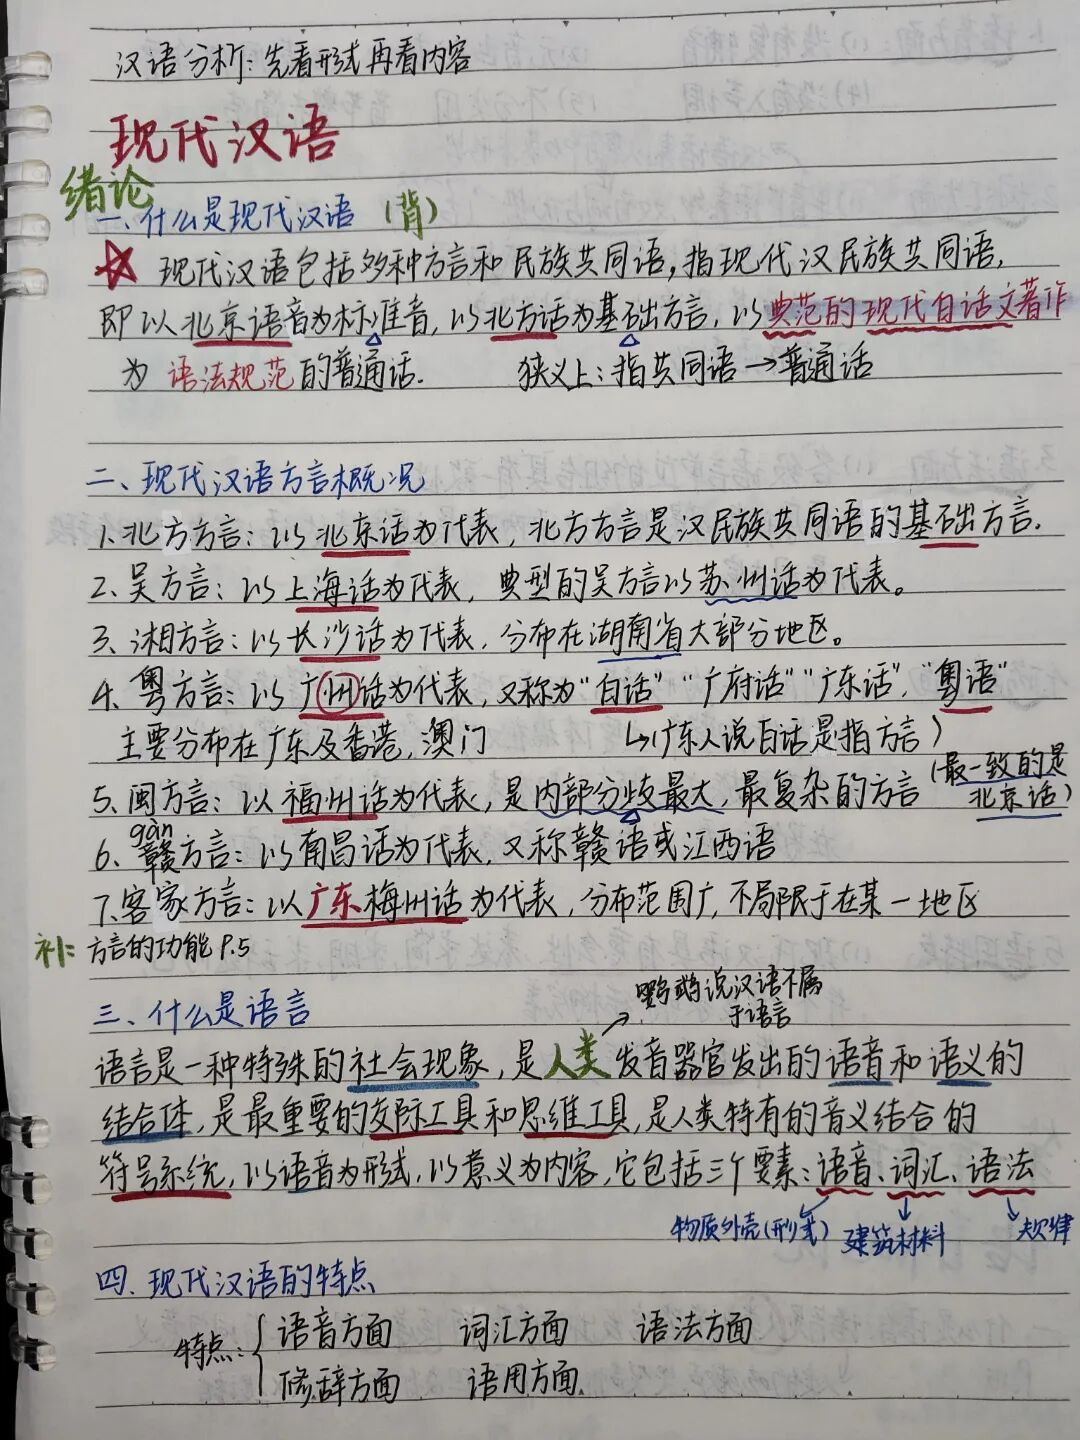 汉语分析：先看形式再看内容
现代汉语
绪论
一、什么是现代汉语（背）
☆ 现代汉语包括多种方言和民族共同语，指现代汉民族共同语，
即以北京语音为标准音，以北方话为基础方言，以典范的现代白话文著作
为语法规范的普通话. 狭义上：指共同语→普通话
二、现代汉语方言概况
1.北方方言：以北京话为代表，北方方言是汉民族共同语的基础方言.
2.吴方言：以上海话为代表，典型的吴方言以苏州话为代表。
3.湘方言：以长沙话为代表，分布在湖南省大部分地区。
4.粤方言：以广州话为代表，又称为“白话”“广府话”“广东话”，“粤语”
主要分布在广东及香港，澳门 ↳(广东人说白话是指方言)
5.闽方言：以福州话为代表，是内部分歧最大，最复杂的方言（最一致的是
北京话）
gàn
6.赣方言：以南昌话为代表，又称赣语或江西语
7.客家方言：以广东梅州话为代表，分布范围广，不局限于在某一地区
补：方言的功能 P.5
三、什么是语言
鹦鹉说汉语不属
于语言
语言是一种特殊的社会现象，是人类发音器官发出的语音和语义的
结合体，是最重要的交际工具和思维工具，是人类特有的音义结合的
符号系统，以语音为形式，以意义为内容，它包括三个要素：语音、词汇、语法
物质外壳(形式) 建筑材料 规律
四.现代汉语的特点
特点： 语音方面 词汇方面 语法方面
修辞方面 语用方面